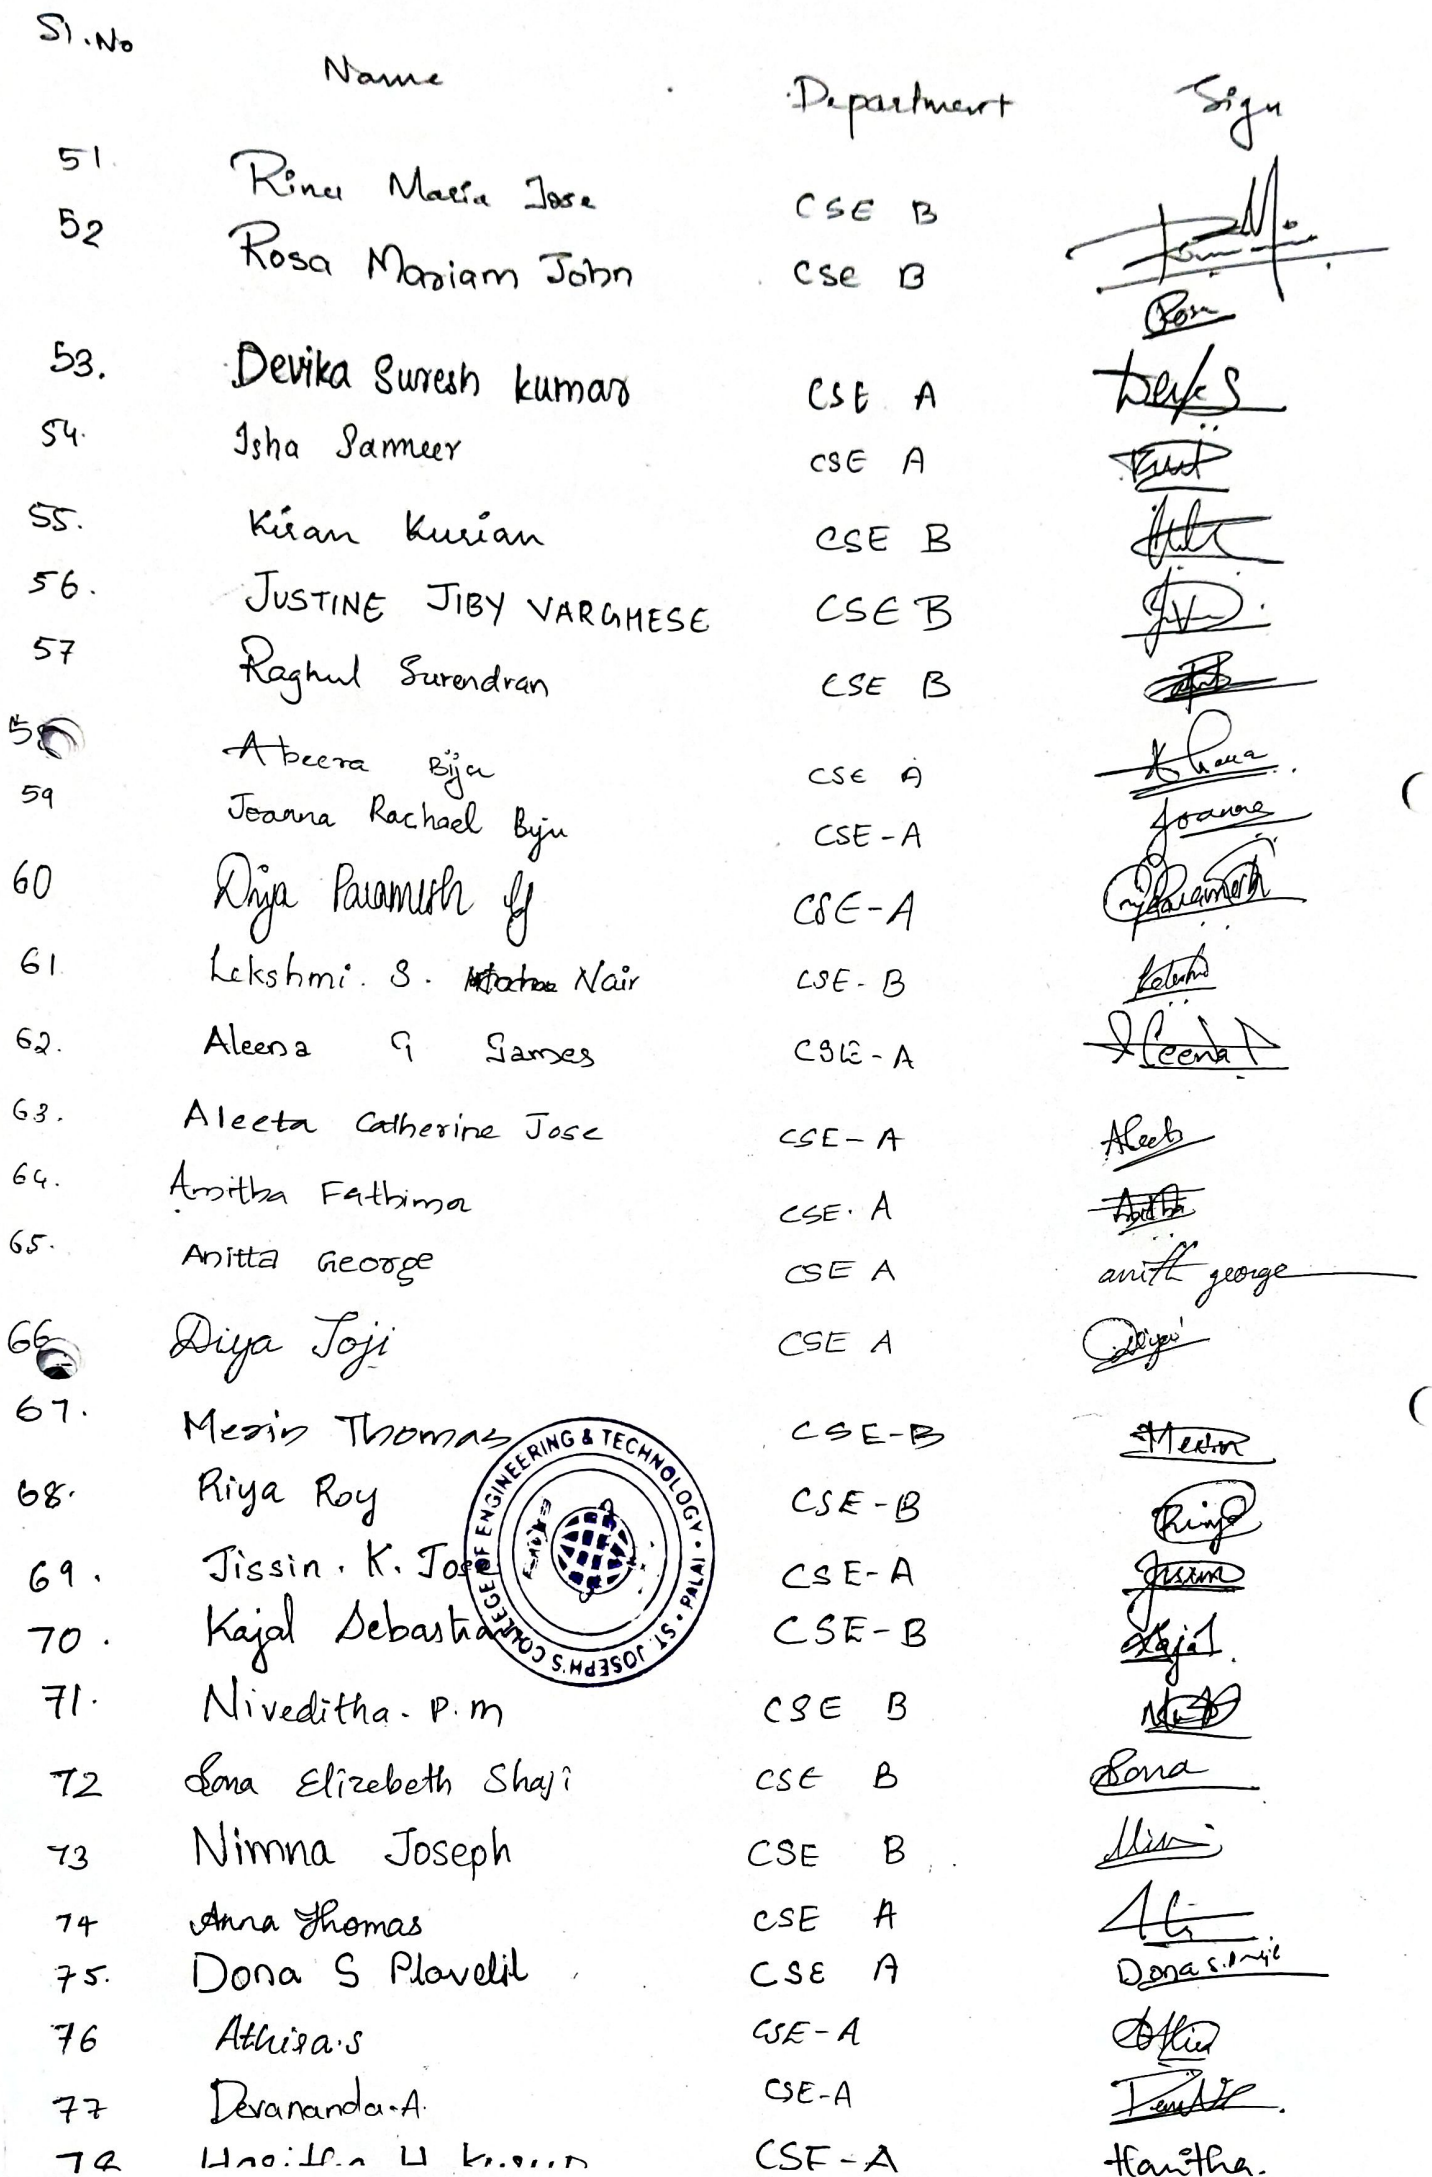 Sl.No Name Department Sign
51. Rinu Maria Jose CSE B
52 Rosa Mariam John CSE B Rosa
53. Devika Suresh kumar CSE A
54. Isha Sameer CSE A
55. Kiran Kurian CSE B
56. JUSTINE JIBY VARGHESE CSE B
57 Raghul Surendran CSE B
Abeera Bija CSE A
59 Joanna Rachael Biju CSE-A Joanna
60 Diya Paramesh CSE-A
61 Lekshmi. S. Nair CSE-B
62. Aleena G James CSE-A Aleena
63. Aleeta Catherine Jose CSE-A Aleeta
64. Anitha Fathima CSE. A
65. Anitta George CSE A anitt george
66 Diya Joji CSE A Diya
67. Merin Thomas CSE-B Merin
68. Riya Roy CSE-B Riya
69. Jissin. K. Jose CSE-A Jissin
70. Kajal Sebastian CSE-B Kajal.
ST. JOSEPH'S COLLEGE OF ENGINEERING & TECHNOLOGY • PALAI •
71. Niveditha. P.M CSE B
72 Sona Elizebeth Shaji CSE B Sona
73 Nimna Joseph CSE B
74 Anna Thomas CSE A
75. Dona S Plavelil CSE A Dona S.
76 Athira.S CSE-A
77 Devananda.A. CSE-A
78 CSE-A Haritha.